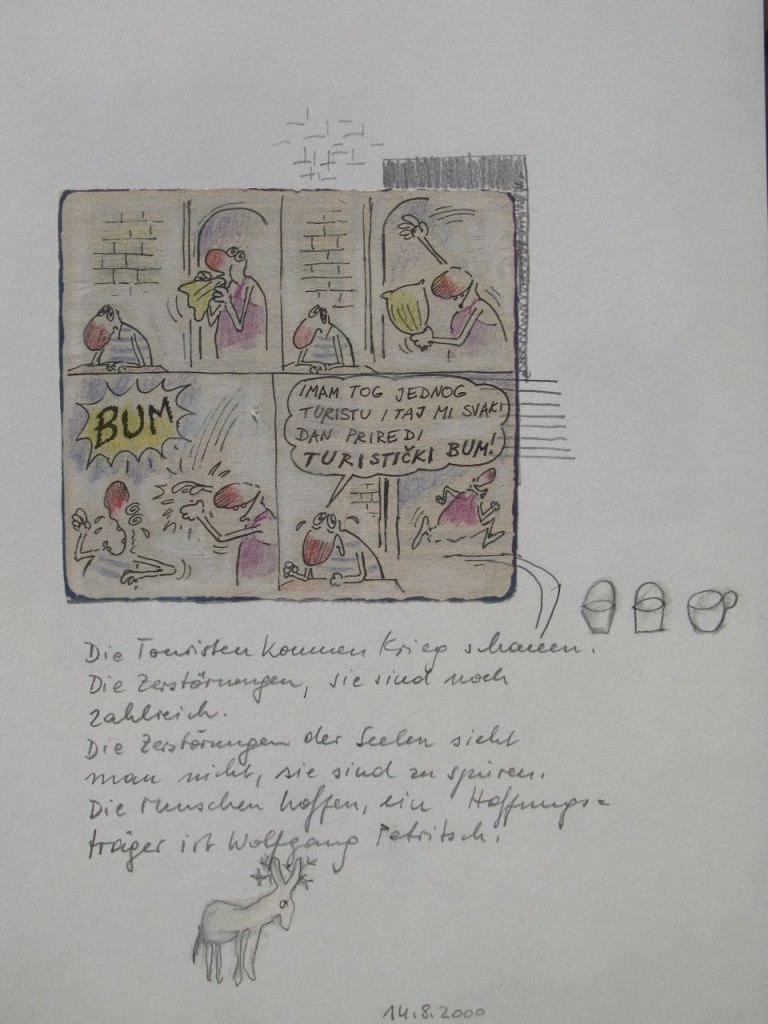 BUM
IMAM TOG JEDNOG
TURISTU I TAJ MI SVAKI
DAN PRIREDI
TURISTIČKI BUM!
Die Touristen kommen Krieg schauen.
Die Zerstörungen, sie sind noch
zahlreich.
Die Zerstörungen der Seelen sieht
man nicht, sie sind zu spüren.
Die Menschen hoffen, ein Hoffnungs=
träger ist Wolfgang Petritsch.
14.8.2000